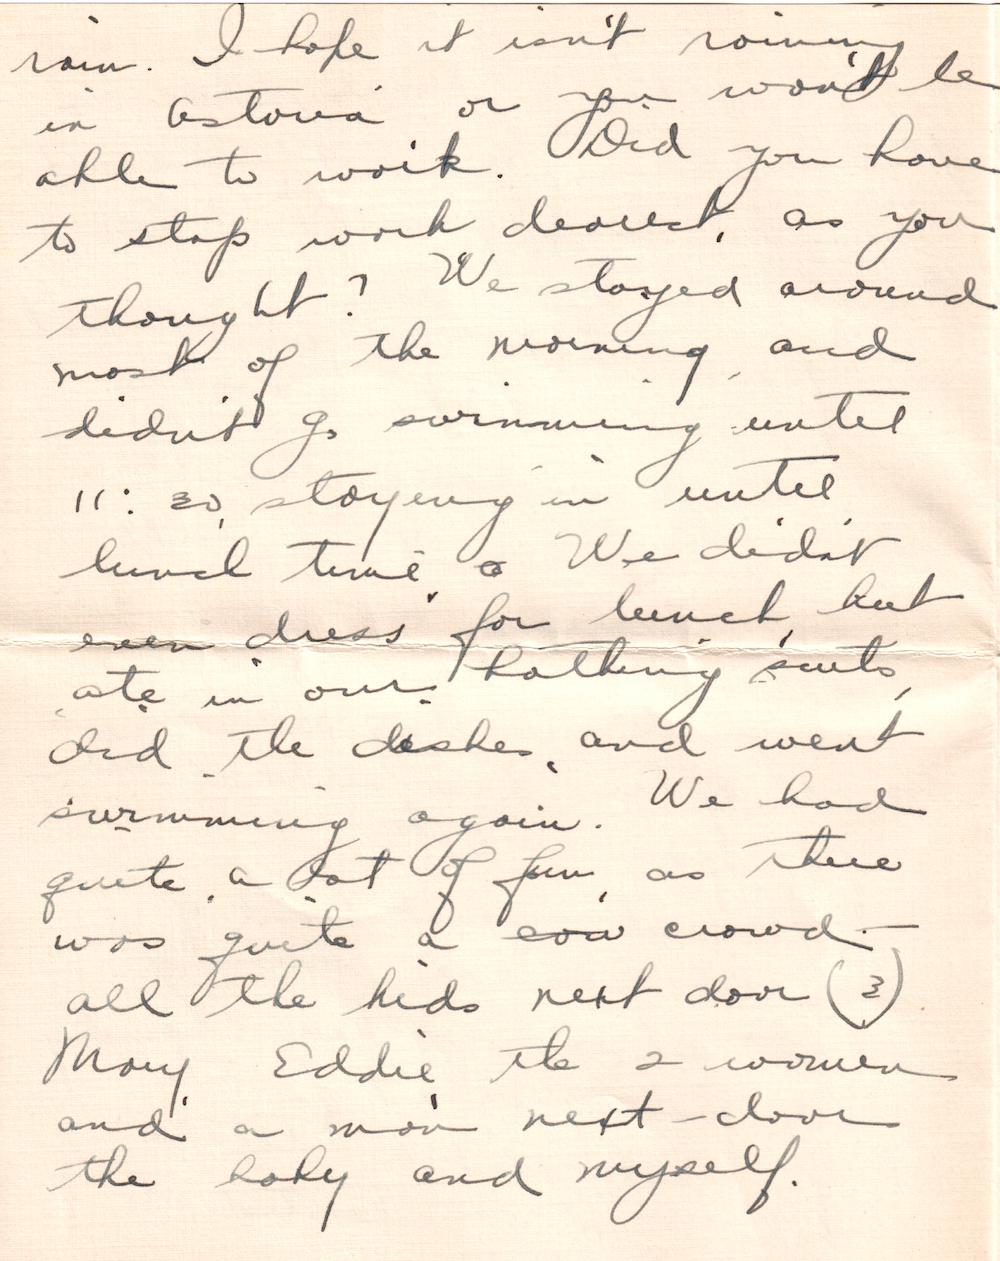 rain. I hope it isn't raining
in Astoria or you won't be
able to work. Did you have
to stop work dearest, as you
thought? We stayed around
most of the morning, and
didn't go swimming until
11:30, staying in until
lunch time. We didn't
even dress for lunch, but
ate in our bathing suits,
did the dishes, and went
swimming again. We had
quite a lot of fun, as there
was quite a cow crowd —
all the kids next door (3)
Mary Eddie the 2 women
and a man next-door
the baby and myself.